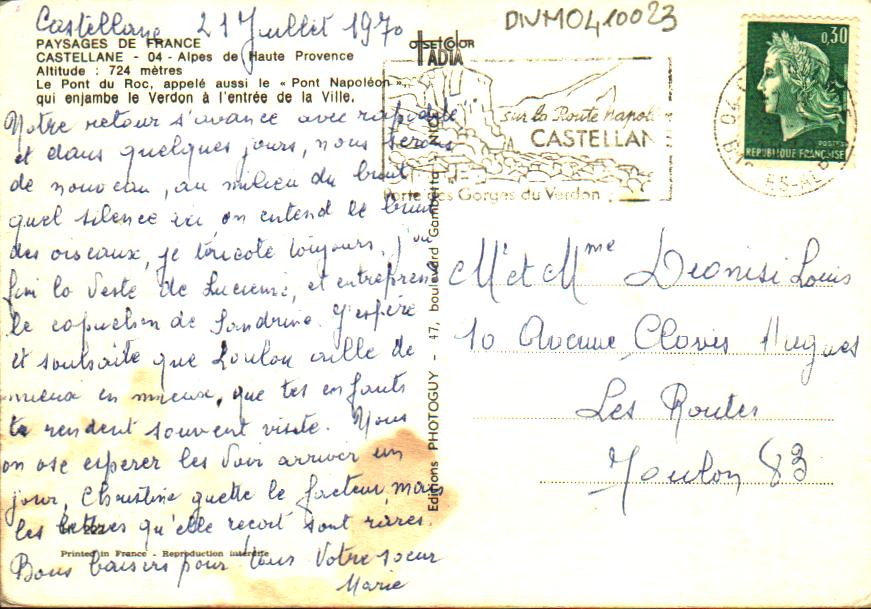 Castellane 21 Juillet 1970
DIVMO410023
PAYSAGES DE FRANCE
CASTELLANE - 04 - Alpes de Haute Provence
Altitude : 724 mètres
Le Pont du Roc, appelé aussi le « Pont Napoléon »,
qui enjambe le Verdon à l'entrée de la Ville.
OFFSET COLOR
IADIA
sur la Route Napol
CASTELLAN
Porte des Gorges du Verdon
0,30
POSTES
REPUBLIQUE FRANÇAISE
04
Notre retour s'avance avec rapidité
et dans quelques jours, nous serons
de nouveau, au milieu du bruit
quel silence ici on entend le bruit
des oiseaux, je tricote toujours, j'ai
fini la veste de Lucienne, et entreprend
le capuchon de Sandrine. J'espère
et souhaite que Loulou aille de
mieux en mieux, que tes enfants
te rendent souvent visite. Nous
on ose esperer les voir arriver un
jour, Christine guette le facteur, mais
les lettres qu'elle recoit sont rares.
Bons baisers pour tous Votre soeur
Marie
222
Printed in France - Reproduction interdite
Editions PHOTOGUY - 47, boulevard Gambetta - NICE
Mr et Mme Dionisi Louis
10 Avenue Clovis Hugues
Les Routes
Toulon 83